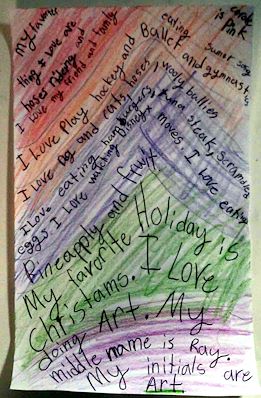 My favorite
thing I love are
hoses
I love my friends and family
eating
Ballet and gymnastics
color
is Pink
I Love Play hockey and
I Love Dog and cats,
I love eating hamburgers
steak, scrambled
eggs I love watching Disney
moves. I love eating
Pineapply and fruit
My favorite Holiday is
Christams. I Love
doing Art. My
middle name is Ray.
My initials are
Art.